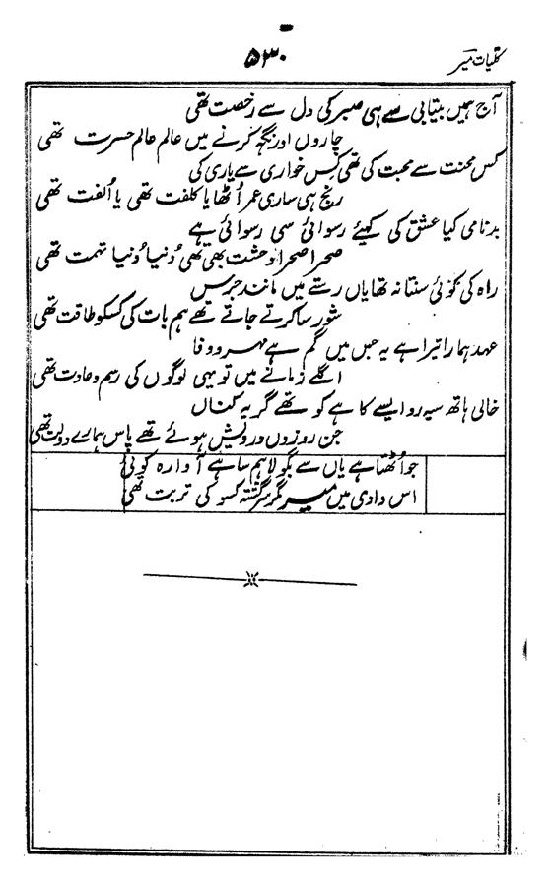 کلیات میر
۵۳۰
آج ہمیں بیتابی سے ہی صبر کی دل سے رخصت تھی
چاروں اور نگہ کرنے میں عالم عالم حسرت تھی
کس محنت سے محبت کی تھی کس خواری سے یاری کی
رنج ہی ساری عمر اُٹھایا کلفت تھی یا اُلفت تھی
بدنامی کیا عشق کی کہئے رسوائی سی رسوائی ہے
صحرا صحرا وحشت بھی تھی دُنیا دُنیا تہمت تھی
راہ کی کوئی سنتا نہ تھا یاں رستے میں مانند جرس
شور سا کرتے جاتے تھے ہم بات کی کسکو طاقت تھی
عہد ہمارا تیرا ہے یہ جس میں گم ہے مہر و وفا
اگلے زمانے میں تو یہی لوگوں کی رسم و عادت تھی
خالی ہاتھ سیہ رو ایسے کاہے کو تھے گریہ کناں
جن روزوں درویش ہوئے تھے پاس ہمارے دولت تھی
جو اُٹھتا ہے یاں سے بگولا ہم سا ہے آوارہ کوئی
اس وادی میں میر مگر سرگشتہ کسو کی تربت تھی